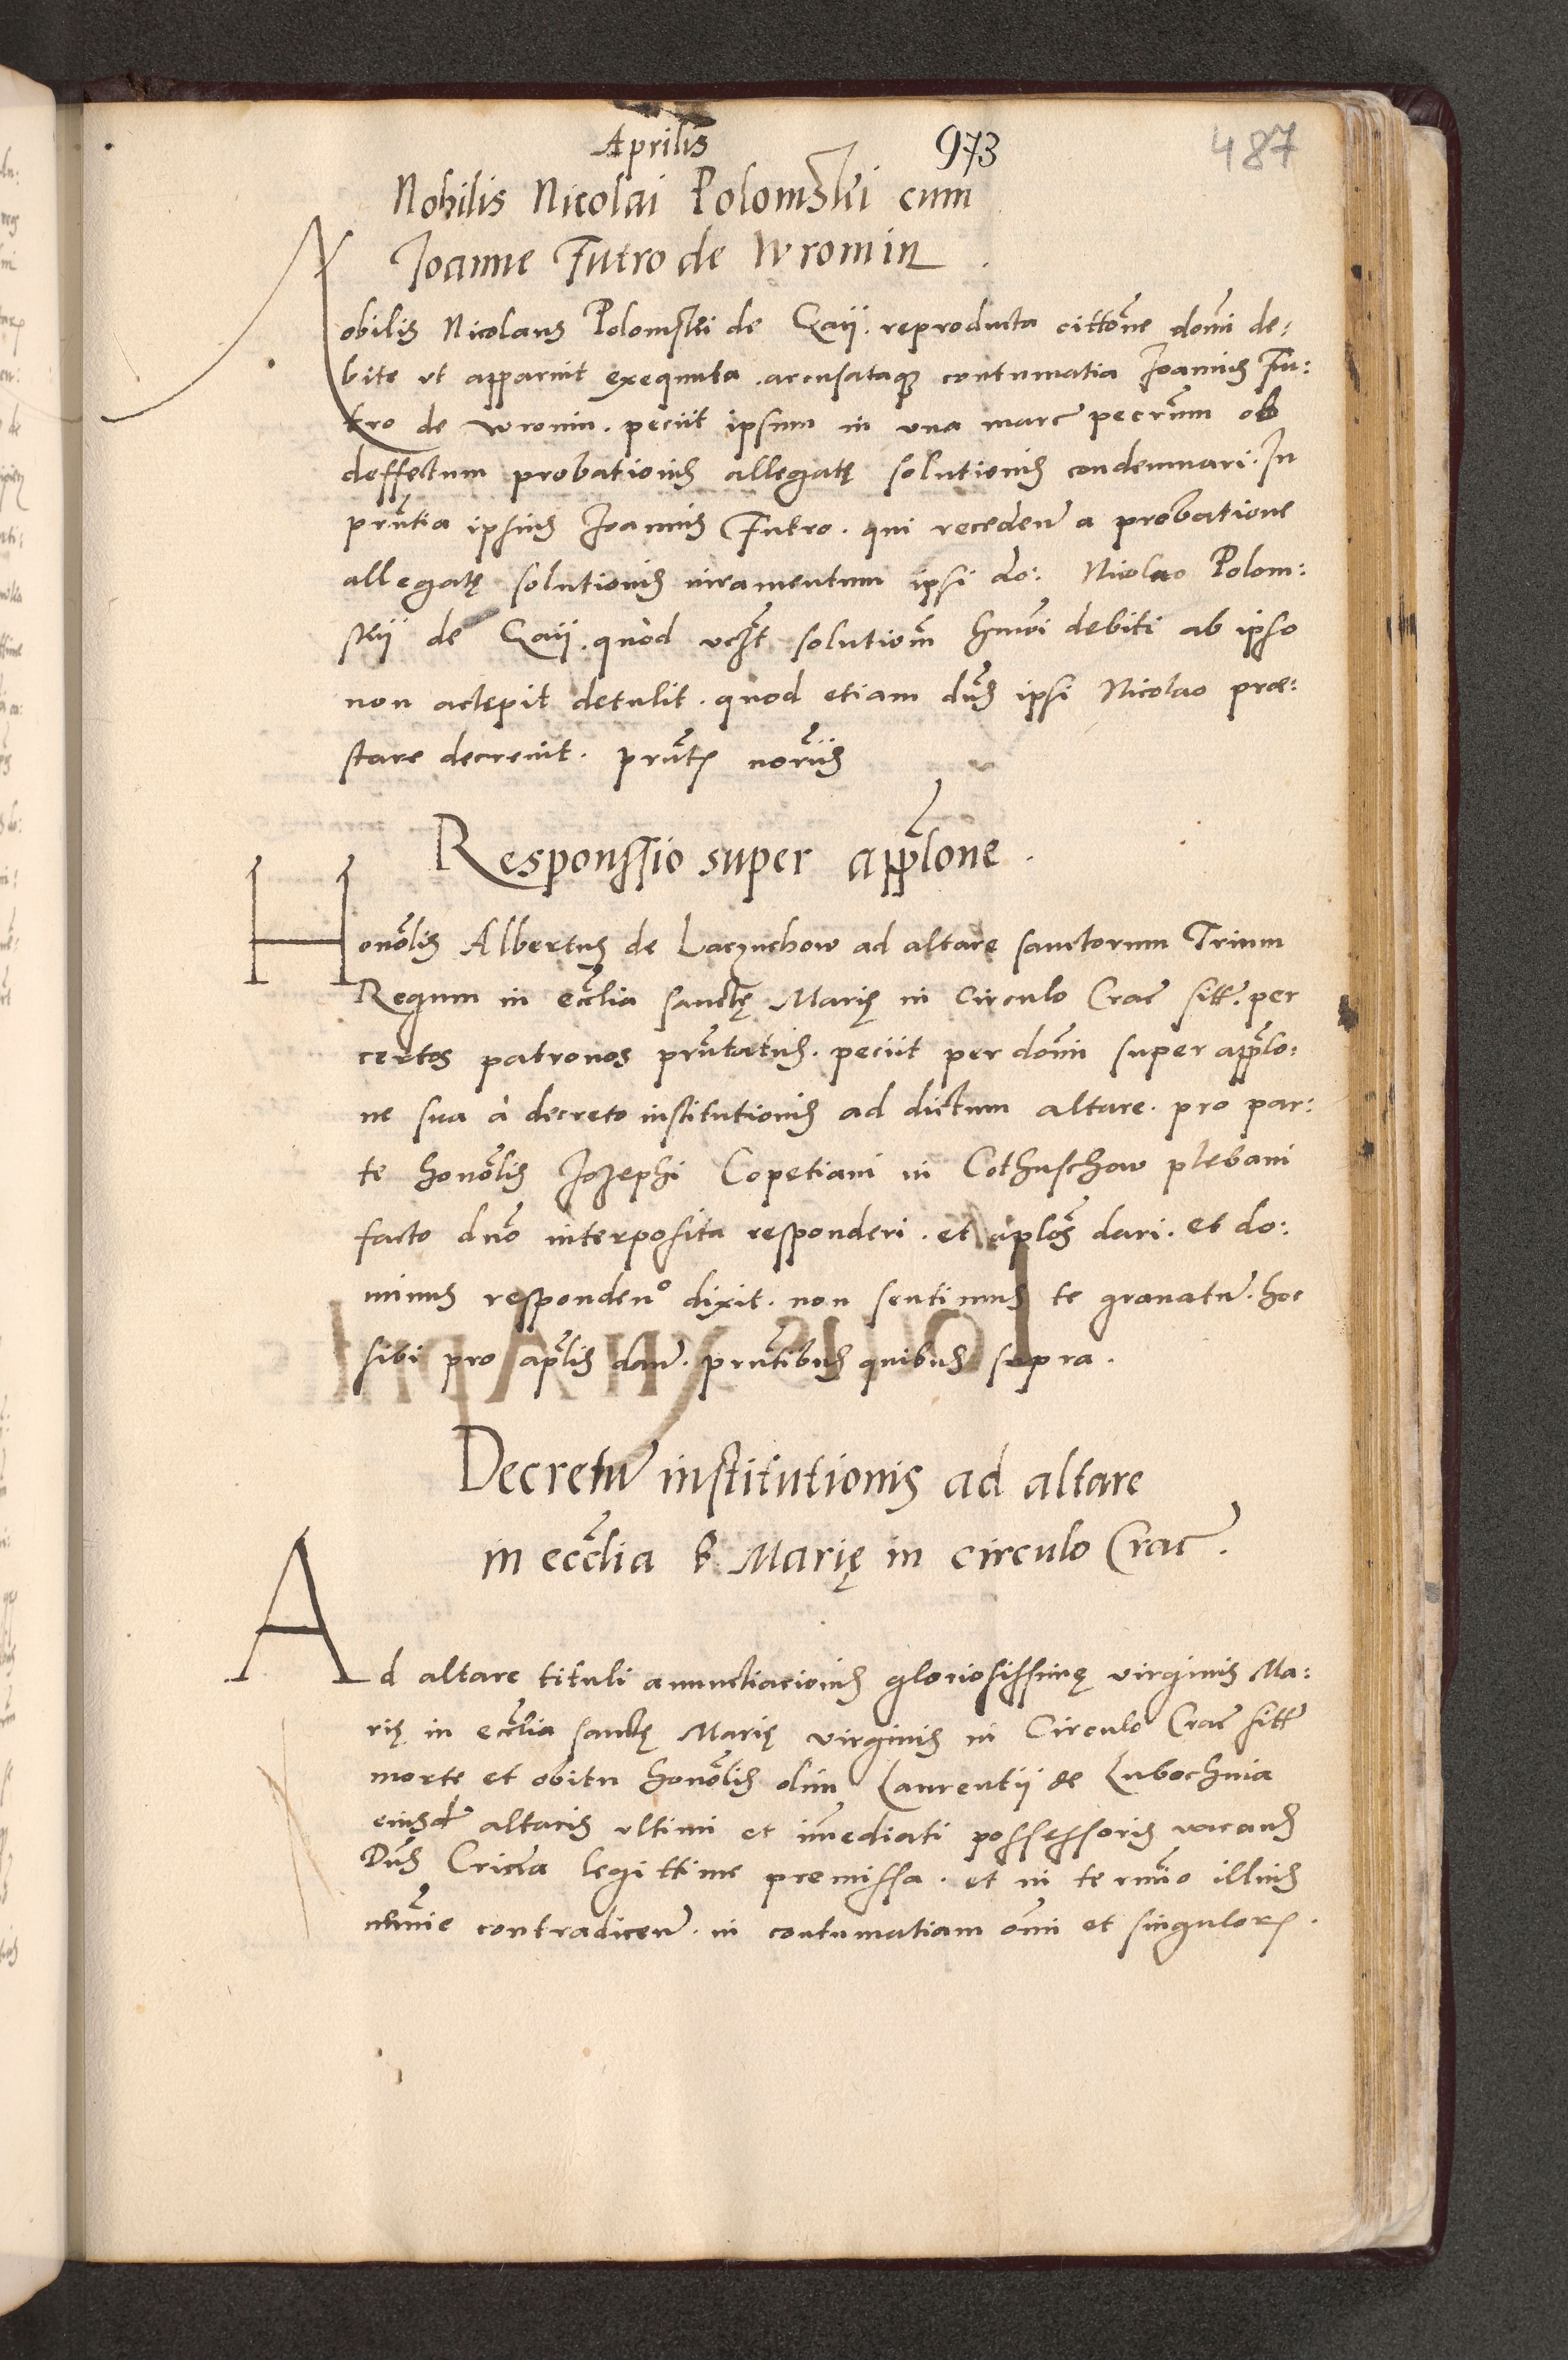 Aprilis 973 487
Nobilis Nicolai Polomski cum
Joanne Futro de Wromin
Nobilis Nicolaus Polomski de Gaii. reproducta cittōne domi de:
bite ut apparuit exequuta. accusataque contumatia Joannis Fu:
tro de Wromin. peciit ipsum in una marc pecūm ob
deffectum probationis allegatę solutionis condemnari. In
prntia ipsius Joannis Futro. qui recedens a probatione
allegatę solutionis iuramentum ipsi do: Nicolao Polom:
skii de Gaii. quod solutiōem debiti ab ipso
non accepit detulit. quod etiam dns ipsi Nicolao præ:
stare decrevit. prnte
Responssio super applōne.
Honōlis Albertus de Laczuchow ad altare sanctorum Trium
Regum in eccłia sanctę Marię in Circulo Crac sitt. per
certos patronos prntatus. peciit per domi super applō:
ne sua a decreto institutionis ad dictum altare. pro par:
te honōlis Jozephi Copetiani in Cothuschow plebani
facto dno interposita responderi. et aplos dari. et do:
minus responden dixit. non sentimus te gravatum. hoc
sibi pro aplis dan. prntibus quibus supra.
Decretum institutionis ad altare
in eccłia S. Marię in circulo Crac.
Ad altare tituli anunctiacionis gloriosissimę virginis Ma:
rię in eccłia sanctę Marię virginis in Circulo Crac sitt
morte et obitu honōlis olim Laurentii de Lubochnia
eiusd altaris ultimi et imediati possessoris vacans
Dns Crida legittime premissa. et in termino illius
nemine contradicen. in contumatiam omi et singulor.